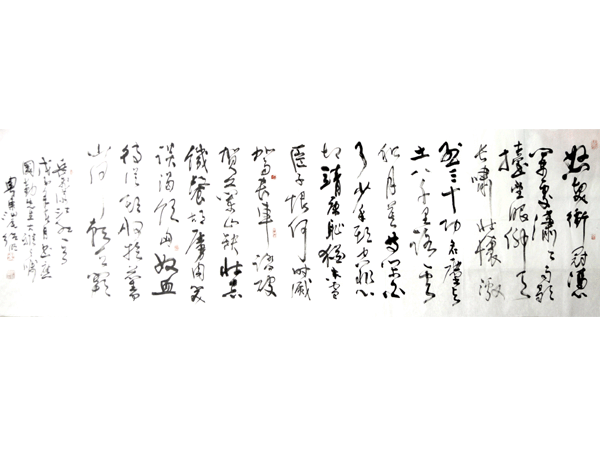 怒髮衝冠憑
闌處瀟瀟雨歇
擡望眼仰天
長嘯壯懷激
烈三十功名塵與
土八千里路雲
和月莫等閒白
了少年頭空悲
切靖康恥猶未雪
臣子恨何時滅
駕長車踏破
賀蘭山缺壯志
飢餐胡虜肉笑
談渴飲匈奴血
待從頭收拾舊
山河朝天闕
岳飛滿江紅一首
戊子年月書應
國勤先生大雅之囑